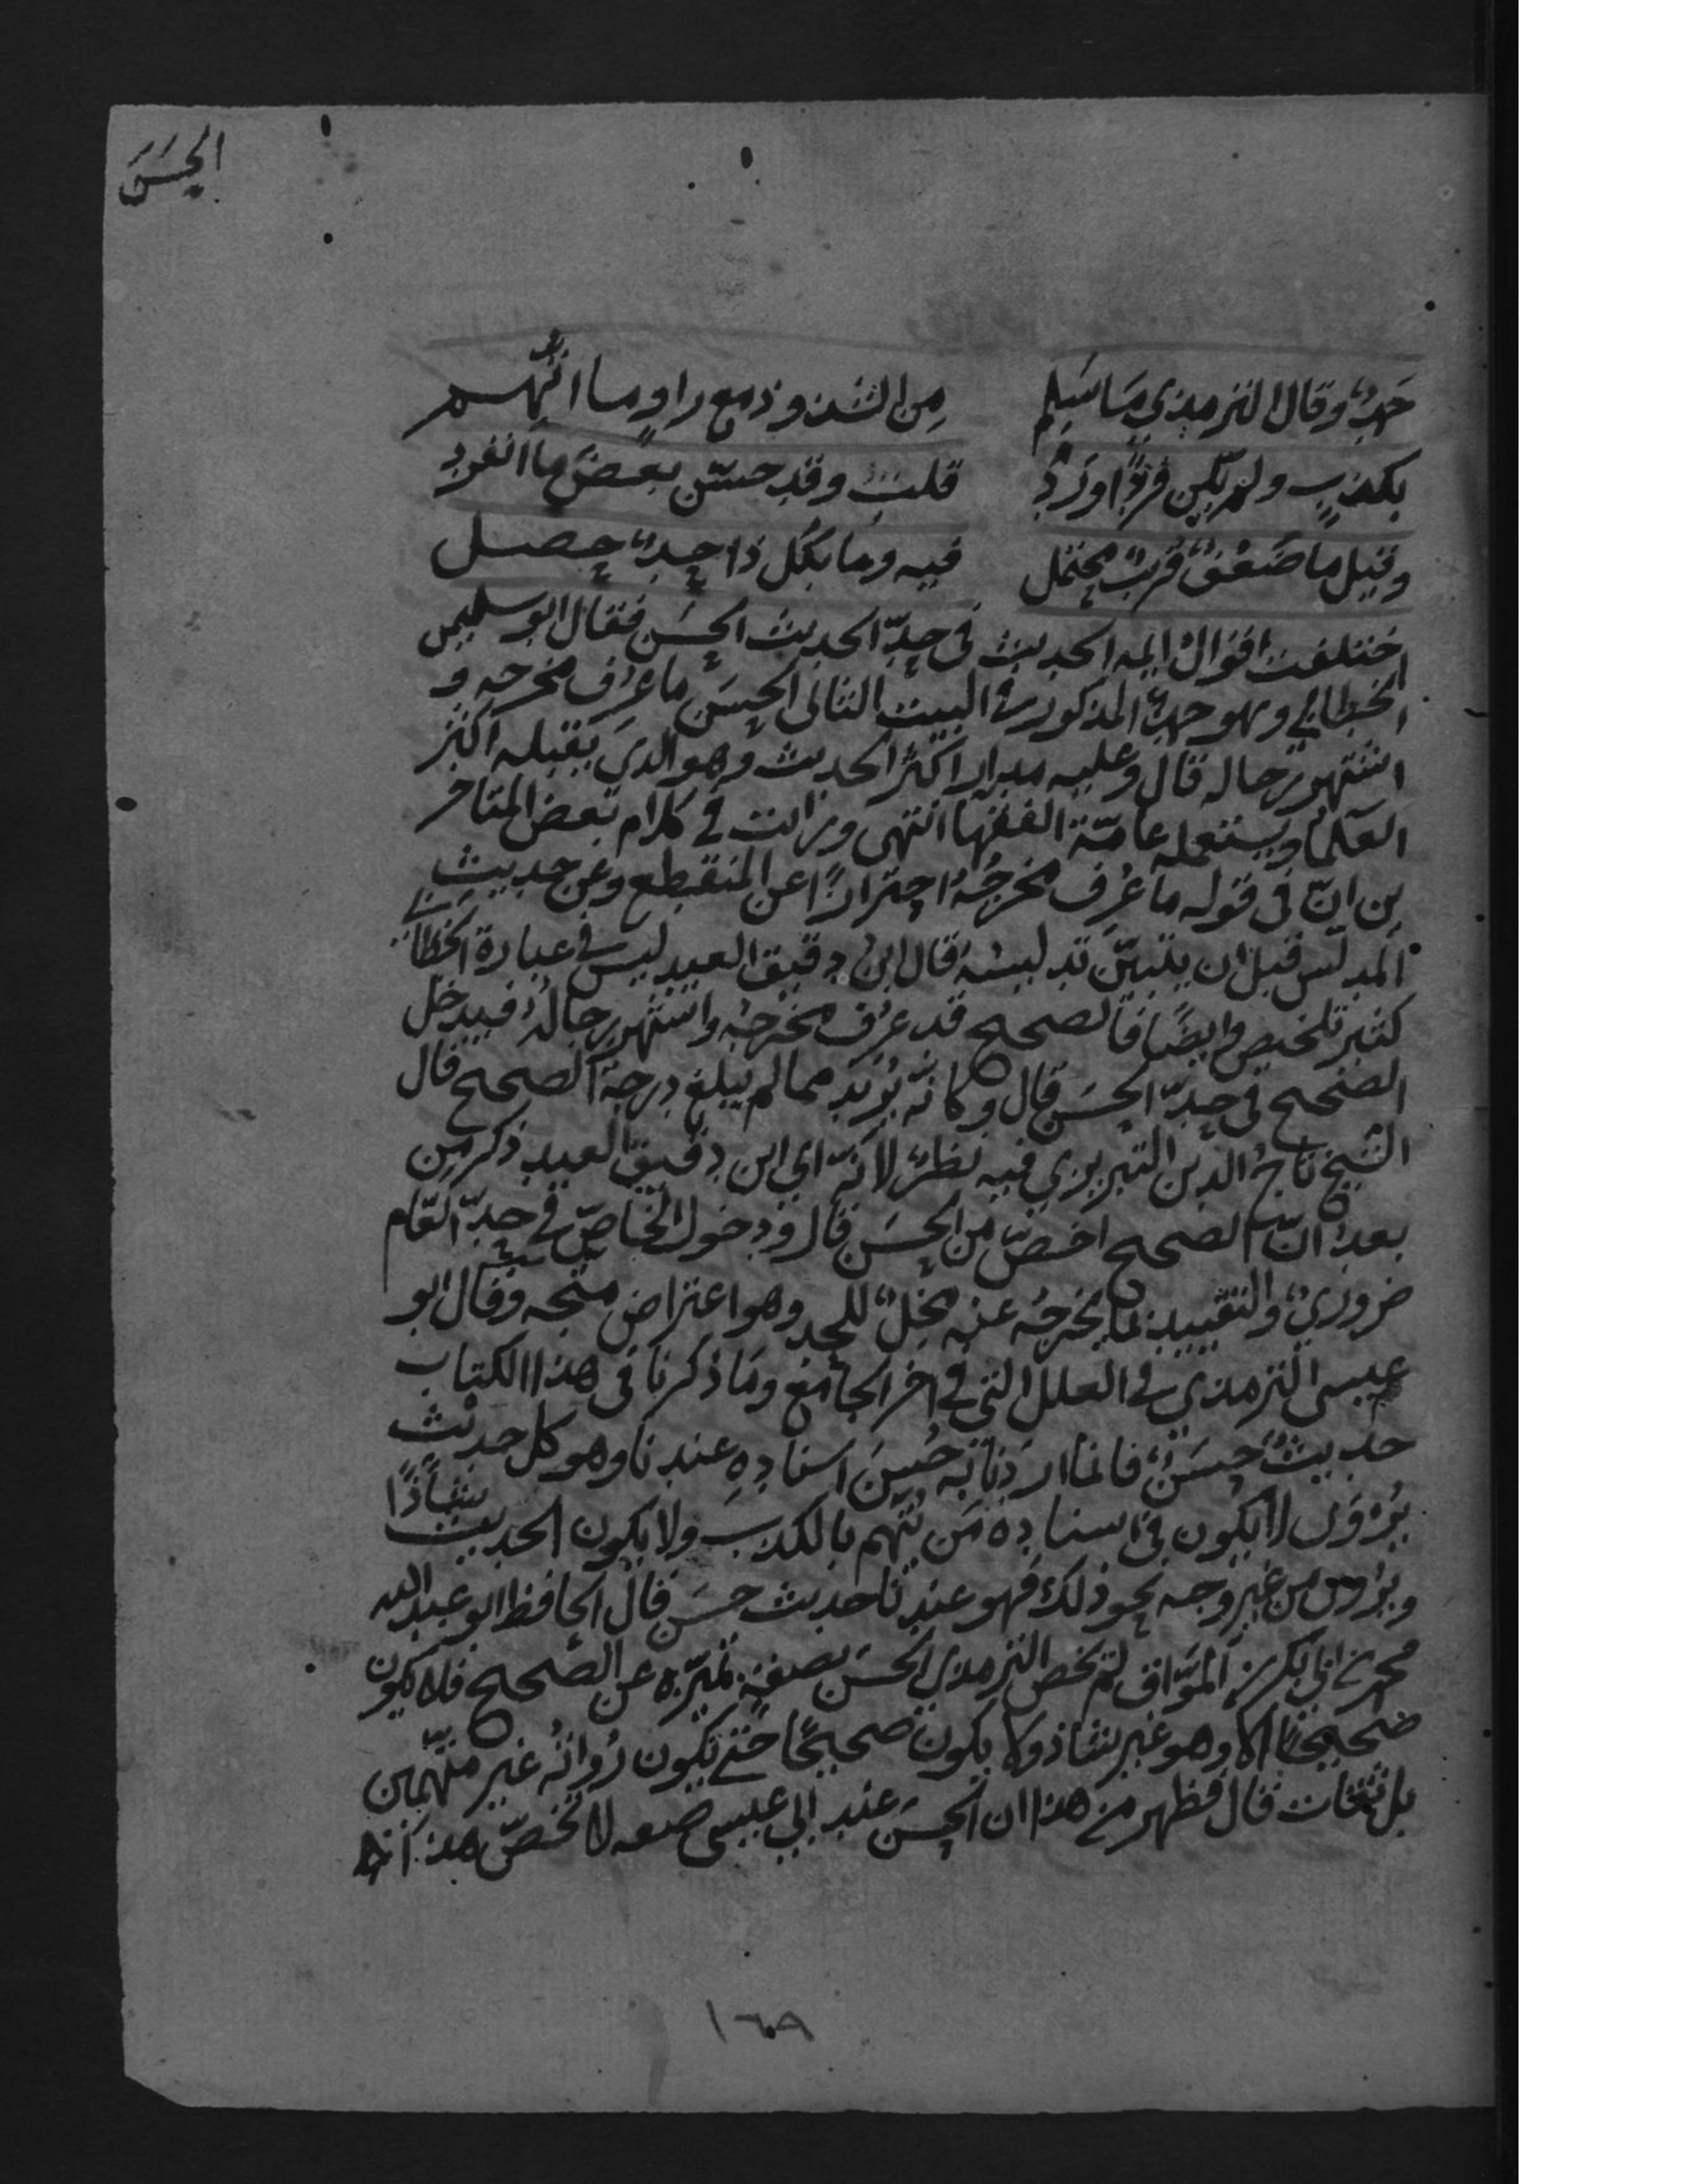 الحسن
حَمْدٌ وقال الترمذي مَا سَلِم من الشذوذ مع راوٍ ما اتُّهم
بكذبٍ ولم يكن فردًا وَرَدْ قلت وقد حسّن بعض ما انفرد
وقيل ما ضعفٌ قريبٌ محتمل فيه وما بكل ذا حدٌ حصل
اختلفت اقوال ايمه الحديث في حدّ الحديث الحسن فقال ابو سليمن
الخطابي وهو حمدٌ المذكور في البيت الثاني الحسن ما عرف مخرجه و
اشتهر رجاله قال وعليه مدار اكثر الحديث وهو الذي يقبله اكثر
العلما ويستعمله عامّة الفقها انتهى ورايت في كلام بعض المتاخر
ين انّ في قوله ما عُرف مخرجُهُ احترازًا عن المنقطع وعن حديث
المدلس قبل ان يتبيّن تدليسه قال ابن دقيق العيد ليس في عبارة الخطابي
كثير تلخيص وايضًا فالصحيح قد عرف مخرجه واشتهر رجاله فيدخل
الصحيح في حدّ الحسن قال وكانّه يُريد مما لم يبلغ درجة الصحيح قال
الشيخ تاج الدين التبريزي فيه نظرٌ لانّه اي ابن دقيق العيد ذكر من
بعد انّ الصحيح اخصّ من الحسن قال ودخول الخاصّ في حدّ العام
ضروريٌ والتقييد بما يخرجه عنه مخلٌ للحد وهو اعتراض متجه وقال ابو
عيسى الترمذي في العلل التي في اخر الجامع وما ذكرنا في هذا الكتاب
حديثٌ حسنٌ فانما اردنا به حُسنَ اسنادِهِ عندنا وهو كل حديث
يُرْوَى لا يكون في اسناده من يتّهم بالكذب ولا يكون الحديث شاذًا
ويروى من غير وجه نحو ذلك فهو عندنا حديث حسن قال الحافظ ابو عبد الله
محمد بن ابي بكر بن المَوّاق لم يخص الترمذي الحسن بصفة تميّزه عن الصحيح فلا يكون
صحيحًا الا وهو غير شاذ ولا يكون صحيحًا حتى يكون رُواتُه غير متّهمين
بل ثقات قال فظهر من هذا ان الحسن عند ابي عيسى صفه لا تخصّ هذا
١٦٠٩